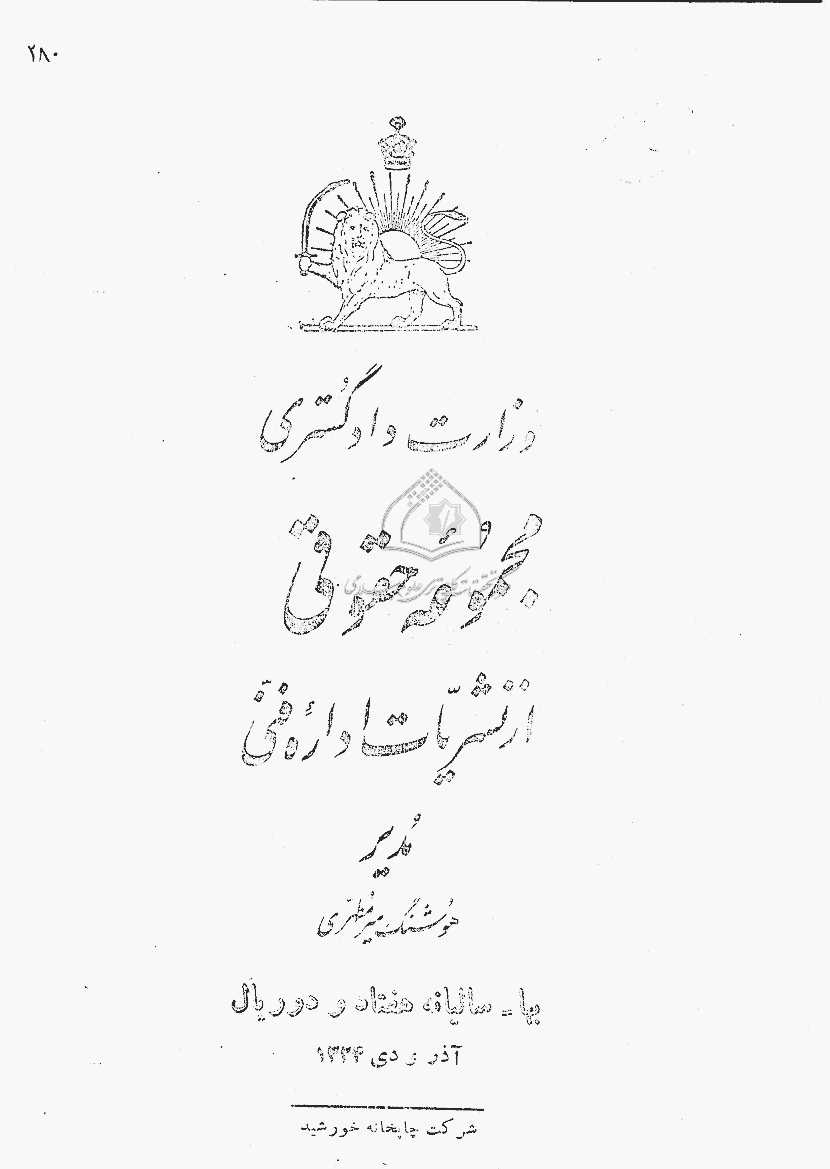 ۲۸۰
وزارت دادگستری
مجموعه حقوقی
از نشریات ادارهٔ فنّی
مُدیر
هوشنگ میرمطهّری
بها - سالیانه هفتاد و دو ریال
آذر و دی ۱۳۲۴
شرکت چاپخانه خورشید